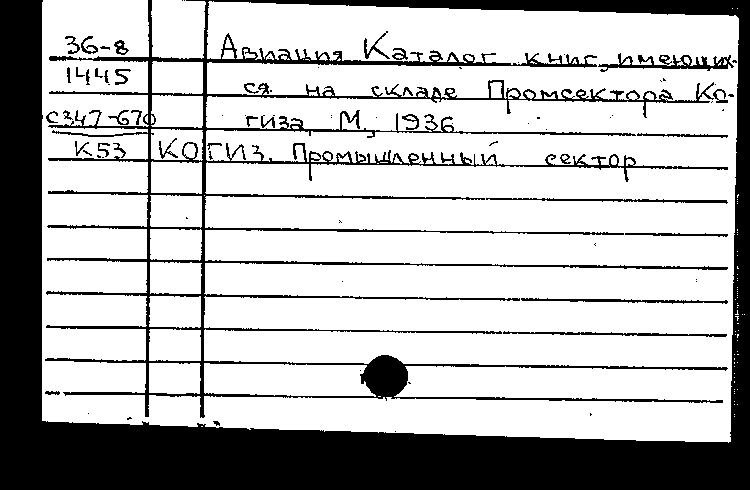 36-8 Авиация Каталог книг, имеющих-
1445 ся на складе Промсектора Ко-
с347-670 гиза, М, 1936
К53 КОГИЗ. Промышленный сектор